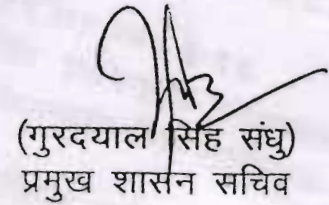 (गुरदयाल सिंह संधु)
प्रमुख शासन सचिव